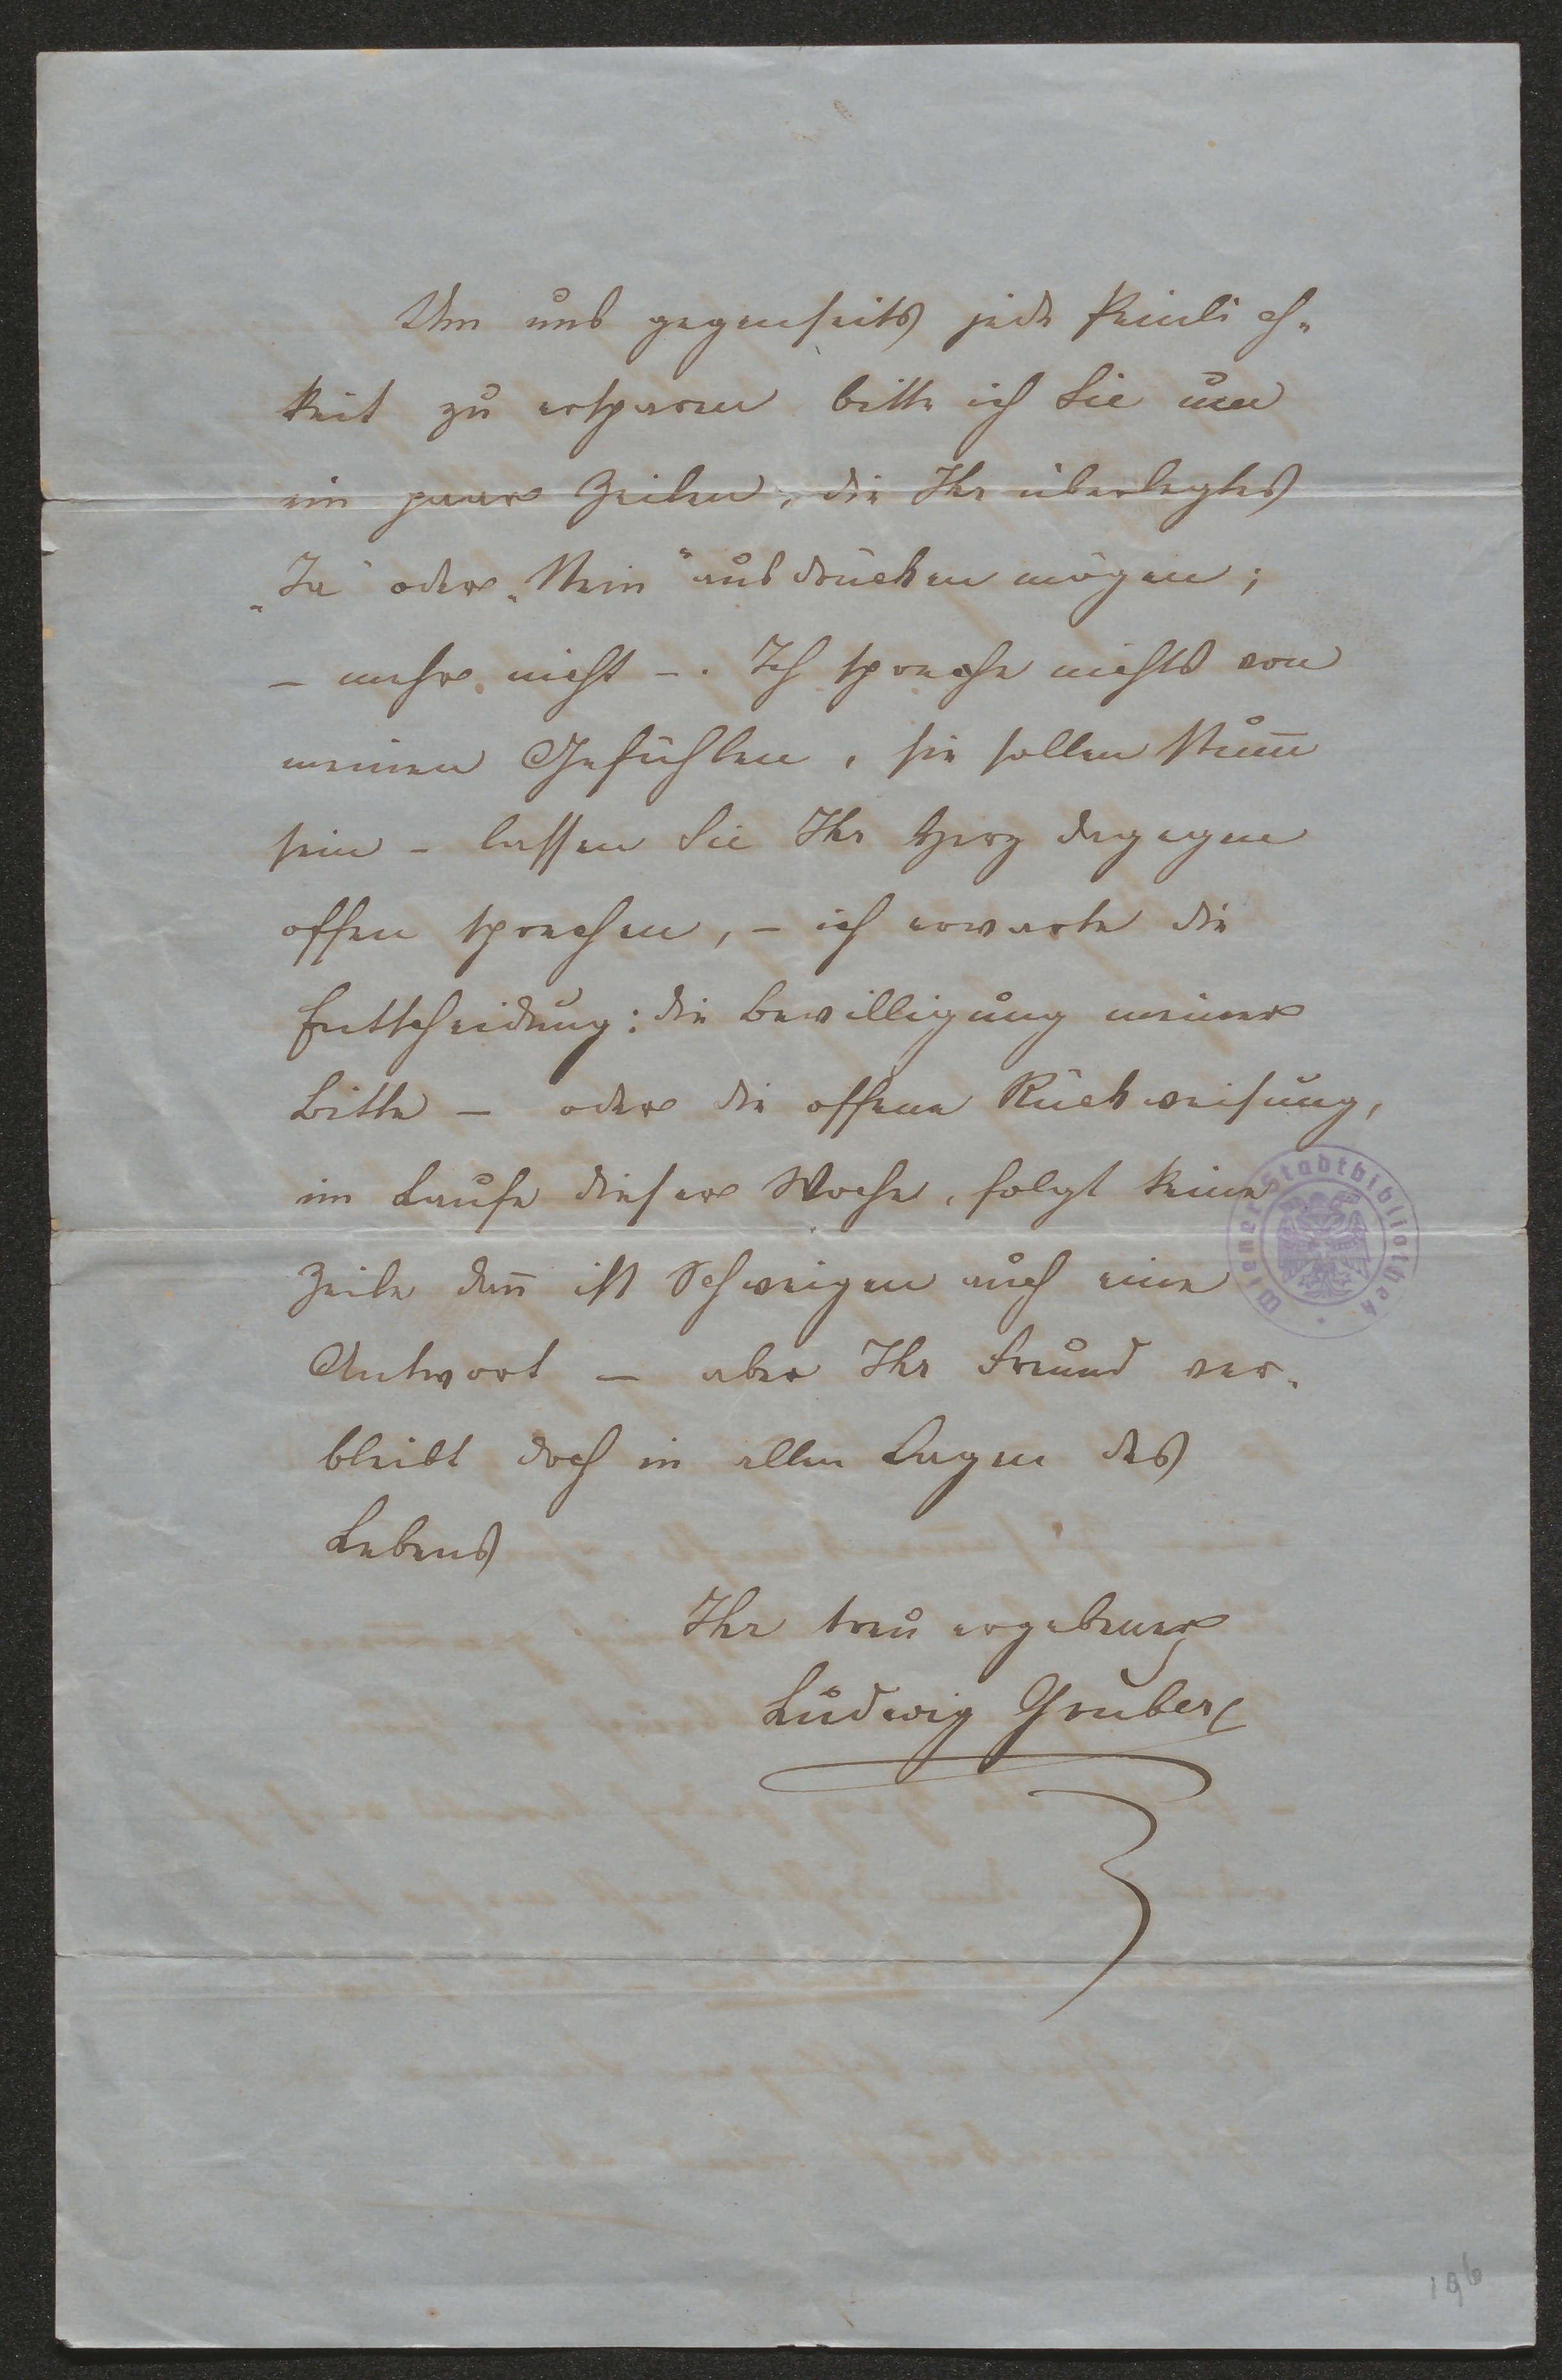 Um uns gegenseits jede Peinlich-
keit zu ersparen bitte ich Sie um
ein paar Zeilen, die Ihr überlegtes
„Ja" oder „Nein" ausdrücken mögen;
– mehr nicht –. Ich spreche nichts von
meinen Gefühlen, sie sollen Stum̅
sein – lassen Sie Ihr Herz dagegen
offen sprechen, – ich erwarte die
Entscheidung: die Bewilligung meiner
Bitte – oder die offene Rückweisung,
im Laufe dieser Woche, folgt keine
Zeile dan̅ ist Schweigen auch eine
Antwort – aber Ihr Freund ver-
bleibt doch in allen Lagen des
Lebens
Ihr treu ergebener
Ludwig Gruber
Wiener Stadtbibliothek
196